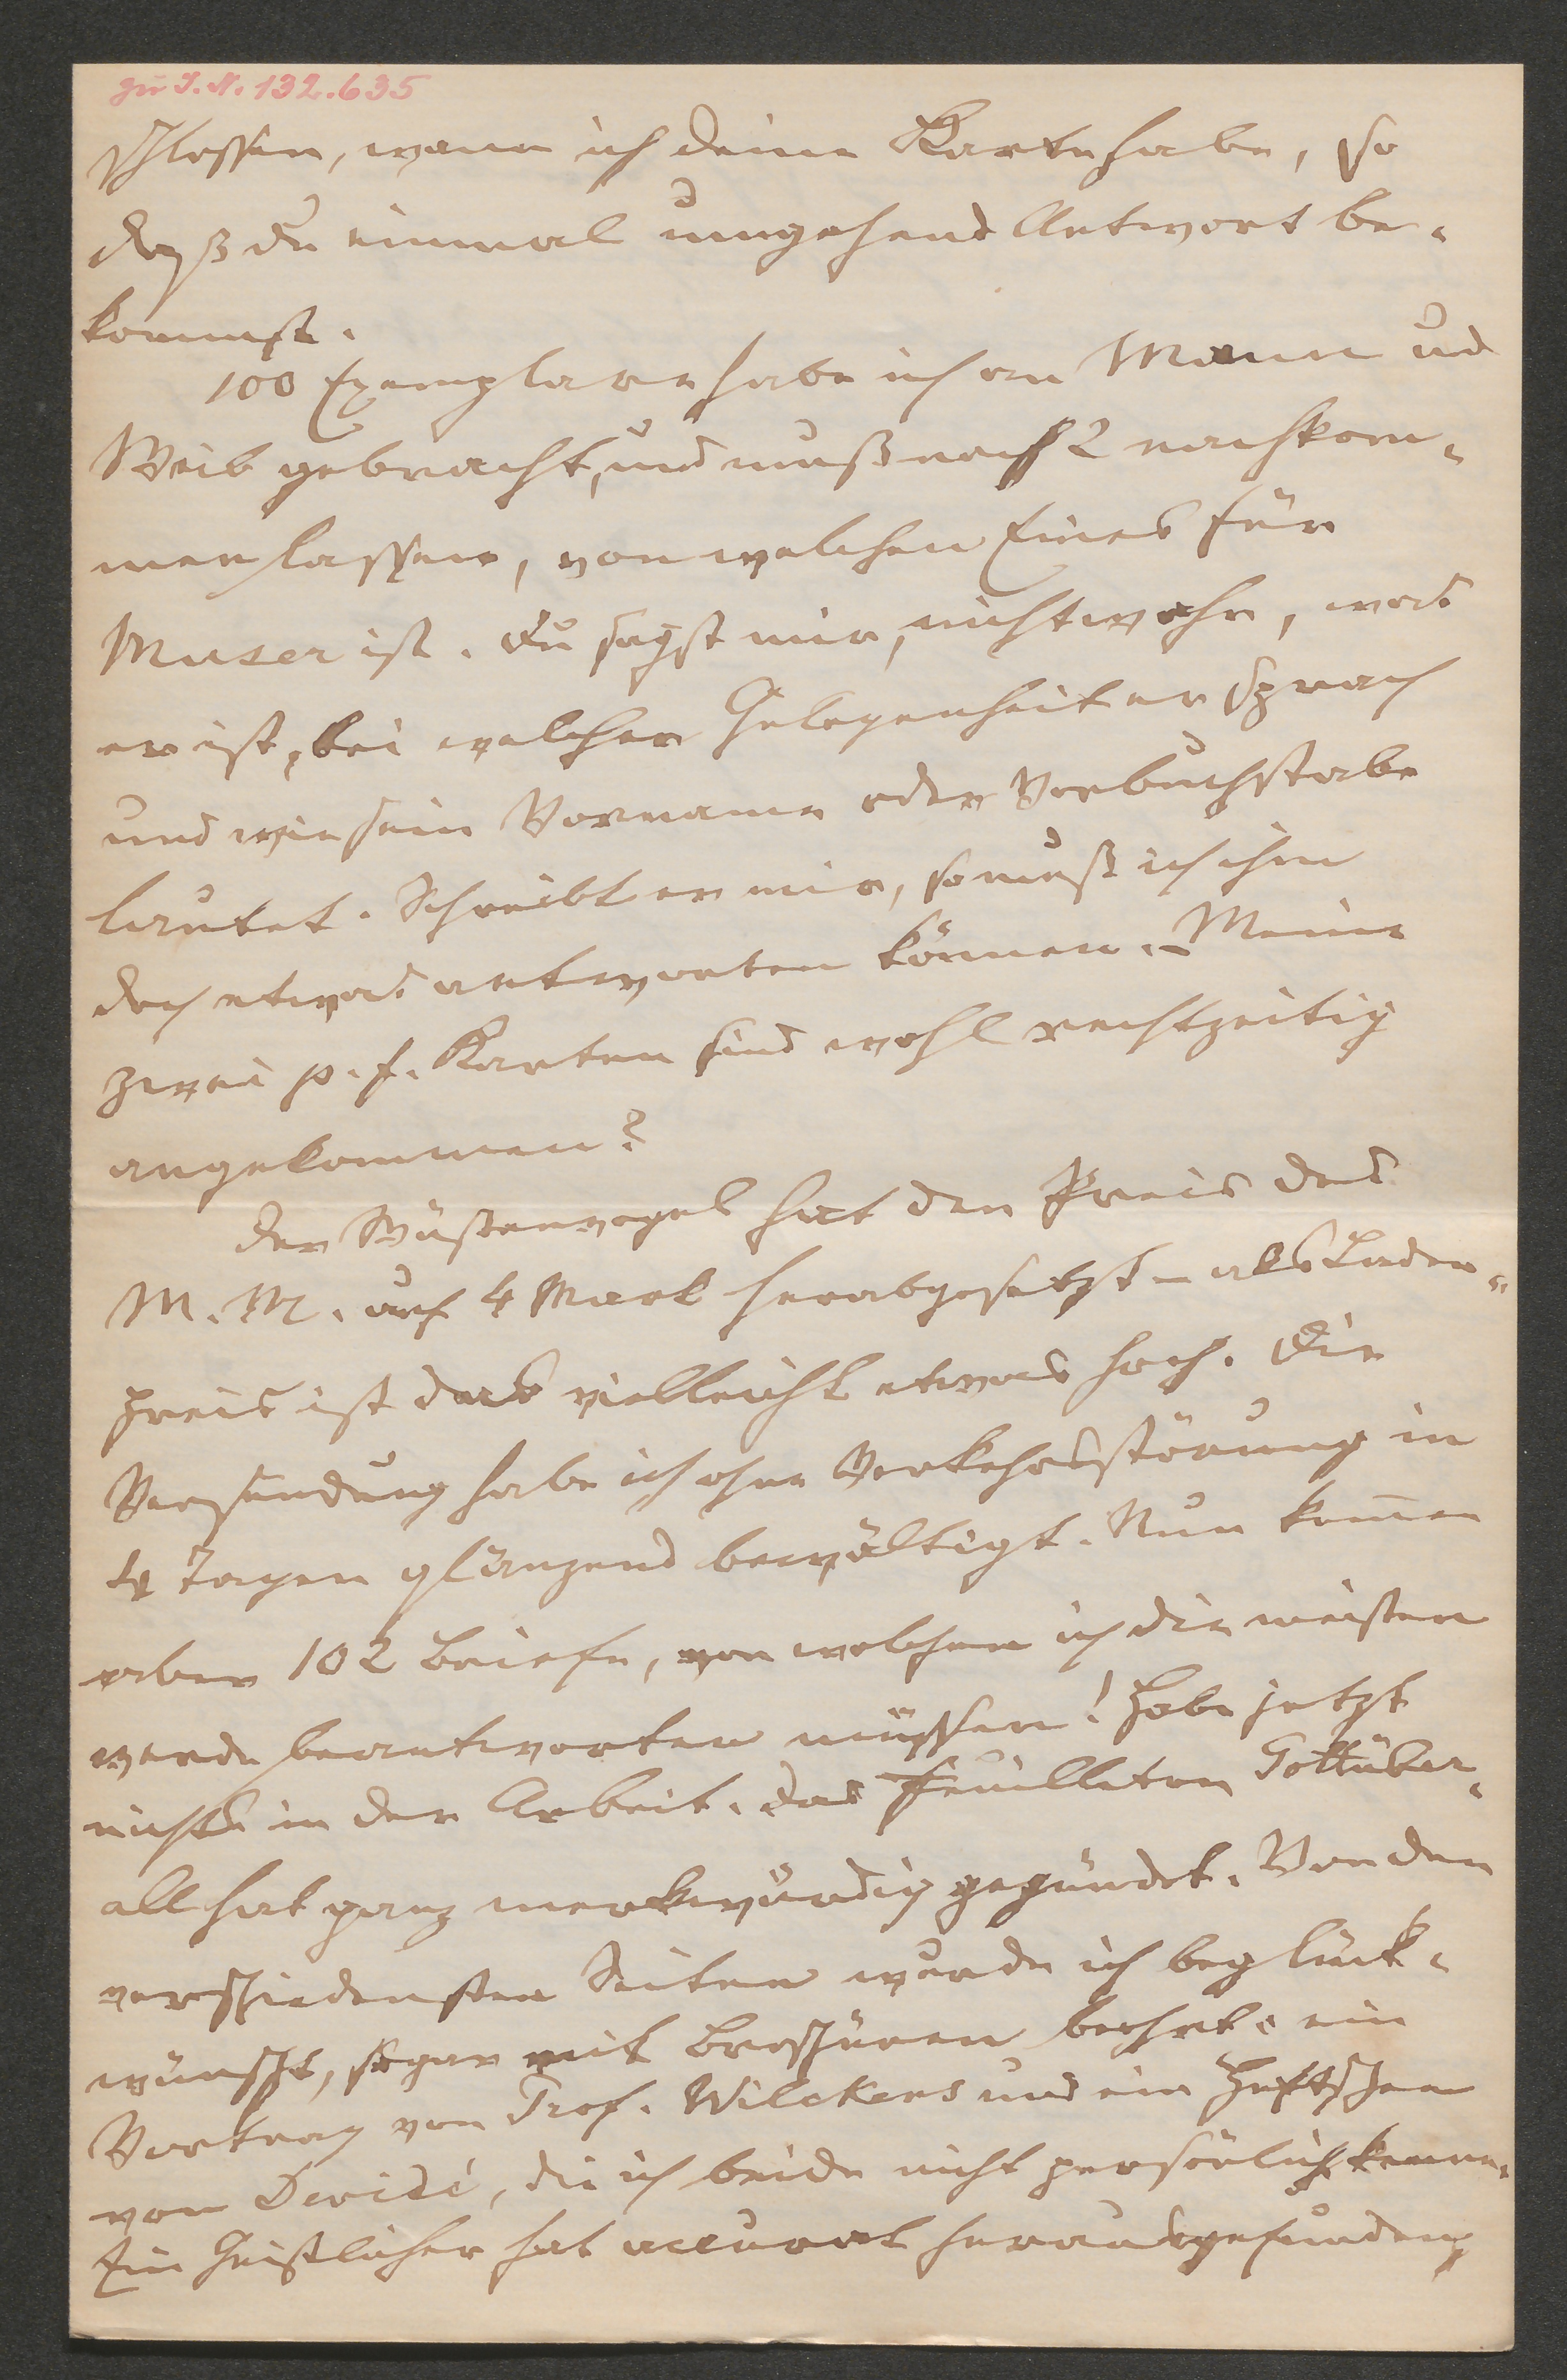 zu I.N. 132.635
schlossen, wenn ich deine Karte habe, so
daß du einmal umgehend Antwort be-
kommst.
100 Exemplare habe ich an Mann und
Weib gebracht, und muß noch 2 nachkom-
men lassen, von welchen Eines für
Muser ist. Du sagst mir, nicht wahr, was
er ist, bei welcher Gelegenheit er sprach
und wie sein Vorname oder Vorbuchstabe
lautet. Schreibt er mir, so muß ich ihm
doch etwas antworten können. – Meine
zwei p. f. Karten sind wohl rechtzeitig
angekommen?
Der Wüstenvogel hat den Preis des
M. M. auf 4 Mark herabgesetzt – als Laden-
preis ist das vielleicht etwas hoch. Die
Versendung habe ich ohne Verkehrsstörung in
4 Tagen glänzend bewältigt. Nun kom̄en
aber 102 Briefe, von welchen ich die meisten
werde beantworten müssen! Habe jetzt
nichts in der Arbeit. Das Feuilleton Gottüber-
all hat ganz merkwürdig gezündet. Von den
verschiedensten Seiten wurde ich beglück-
wünscht, sogar mit Broschüren beehrt: ein
Vortrag von Prof. Wilckens und ein Heftchen
von Devidé, die ich beide nicht persönlich kenne.
Ein Geistlicher hat accurat herausgefunden,